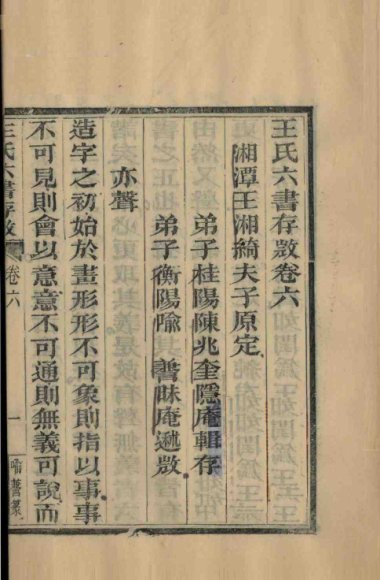 王氏六書存敚卷六
湘潭王湘綺夫子原定
弟子桂陽陳兆奎隱庵輯存
弟子衡陽喻謩昧庵遞敚
亦聲
造字之初始於畫形形不可象則指以事事
不可見則會以意意不可通則無義可說而
王氏六書存敚
卷六
一